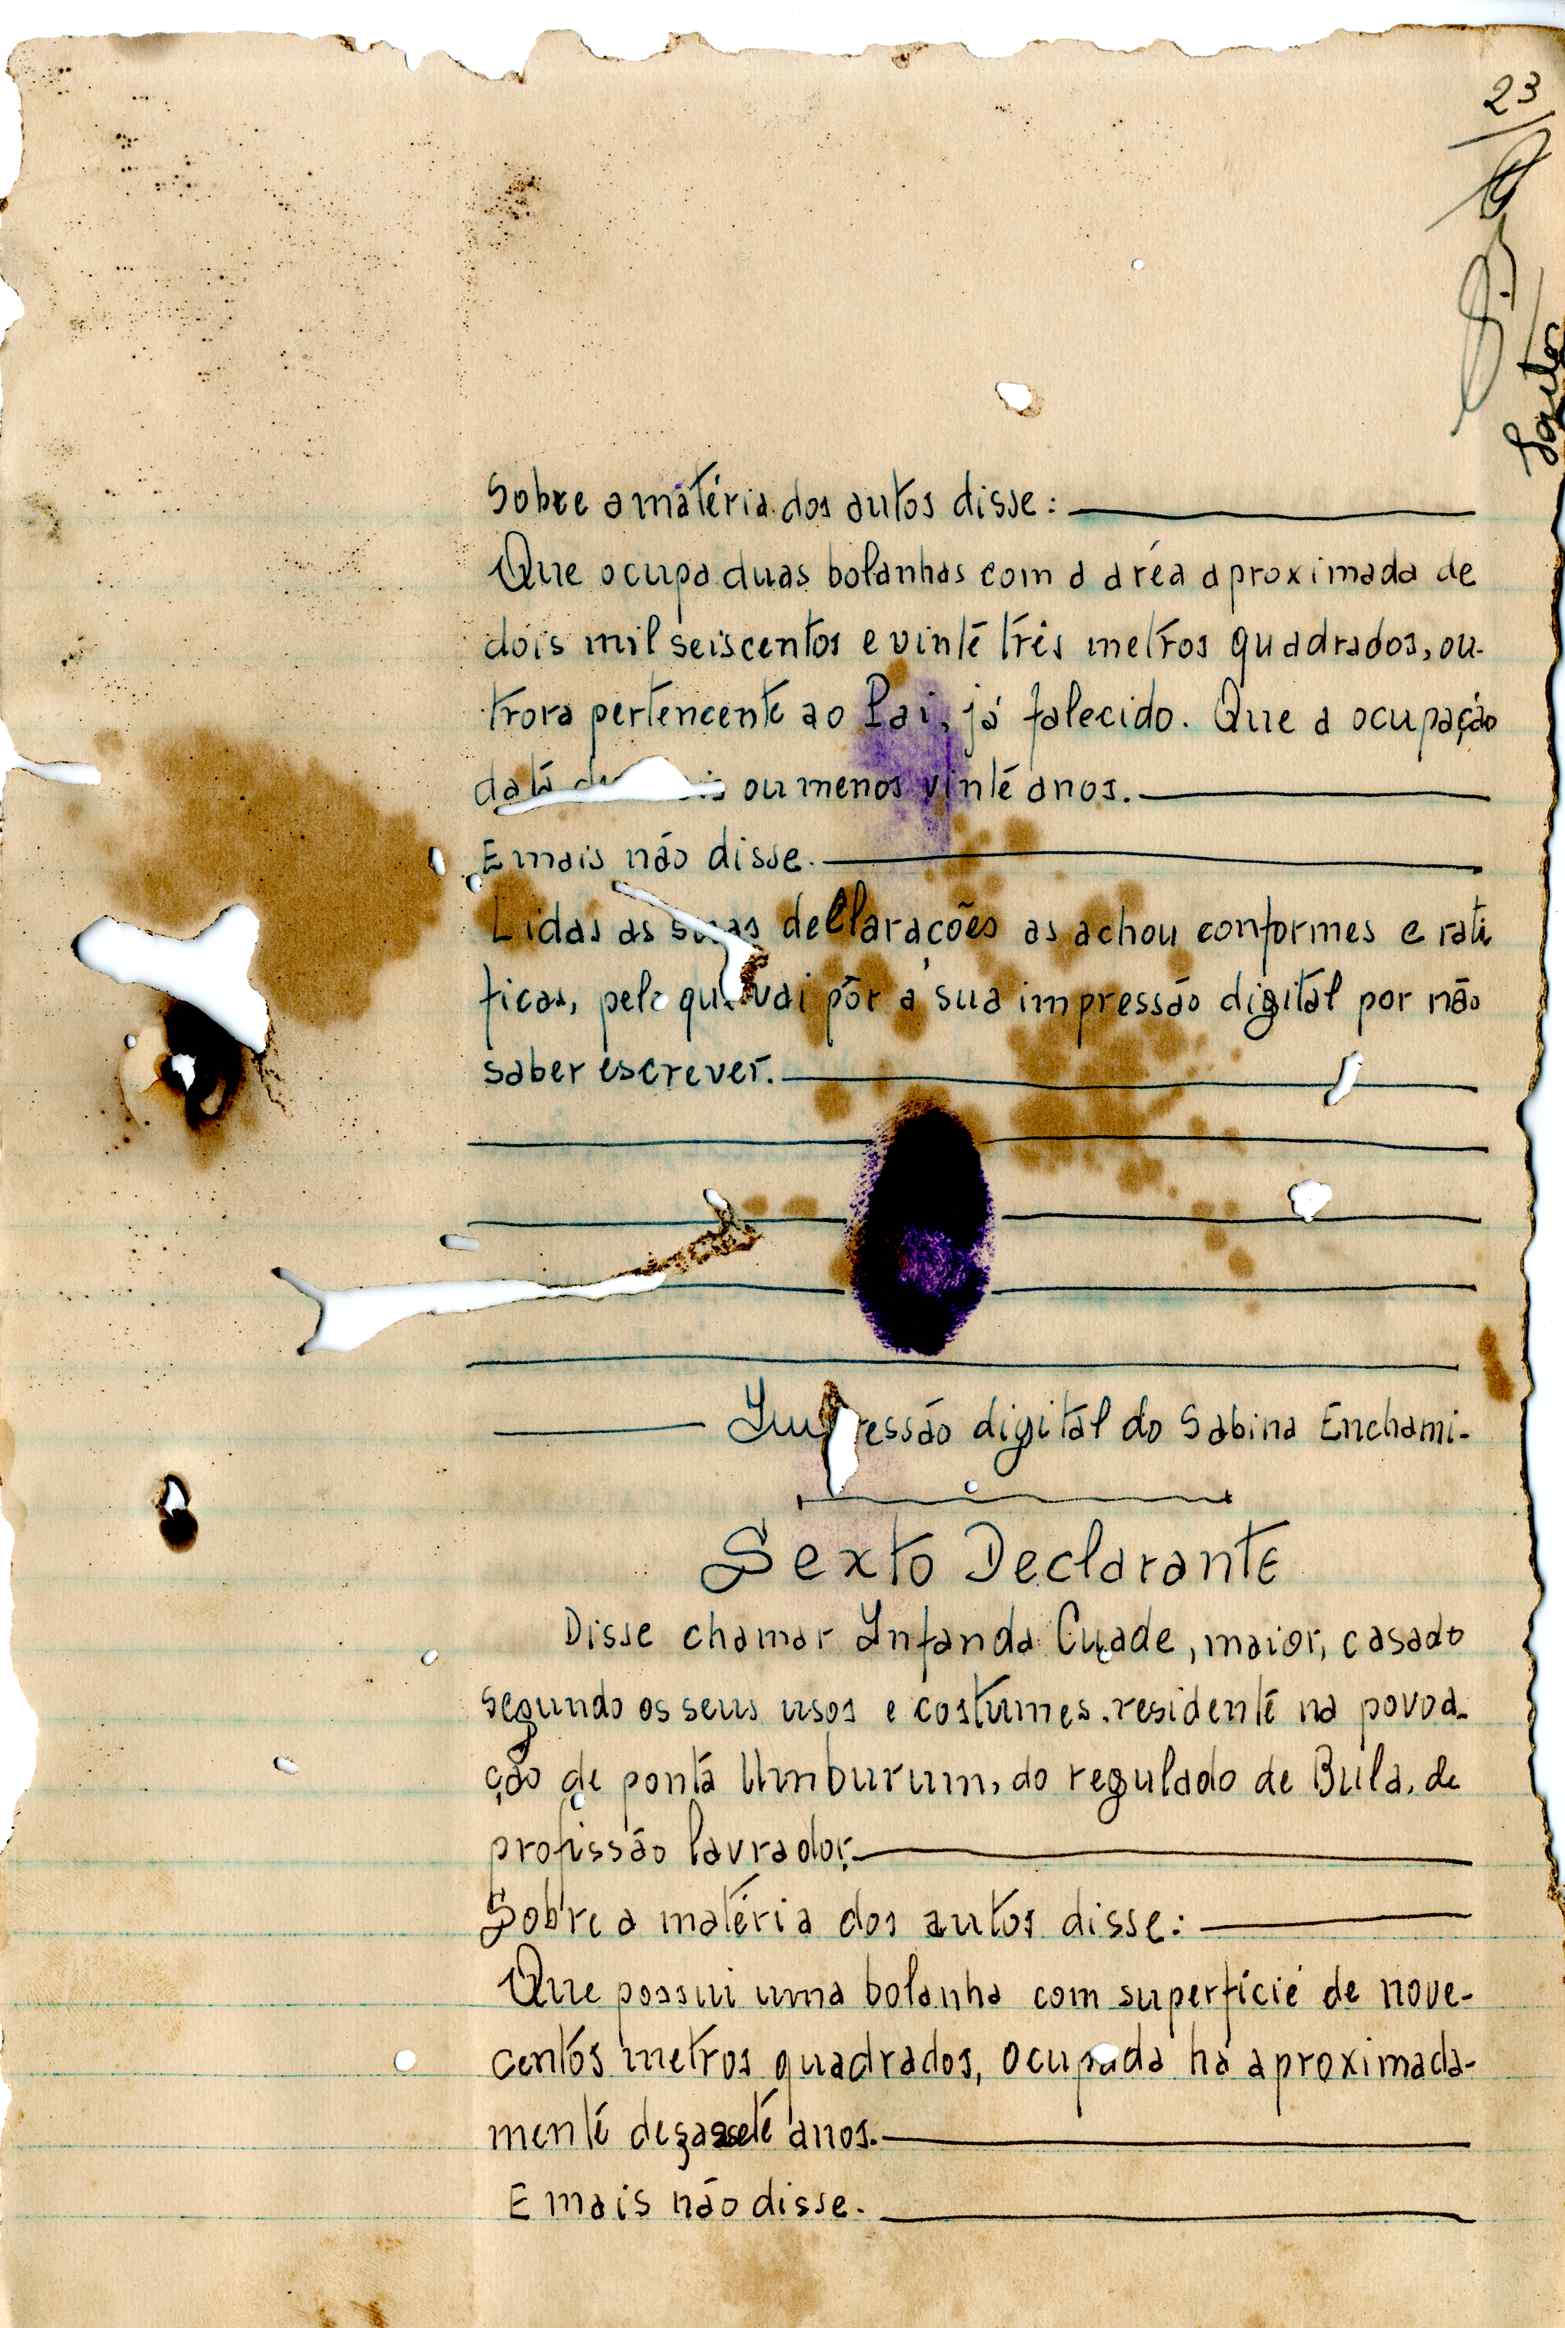 23
Sobre a matéria dos autos disse:
Que ocupa duas bolanhas com a aréa aproximada de
dois mil seiscentos e vinte três metros quadrados, ou-
trora pertencente ao Pai, já falecido. Que a ocupação
data ou menos vinte anos.
E mais não disse.
Lidas as suas declarações as achou conformes e rati
ficas, pelo que vai pôr a sua impressão digital por não
saber escrever.
Impressão digital do Sabina Enchami-
Sexto Declarante
Disse chamar Infanda Cuade, maior, casado
segundo os seus usos e costumes, residente na povoa-
ção de ponta Umburum, do regulado de Bula, de
profissão lavrador,
Sobre a matéria dos autos disse:
Que possui uma bolanha com superfície de nove-
centos metros quadrados, ocupada há aproximada-
mente dezassete anos.
E mais não disse.